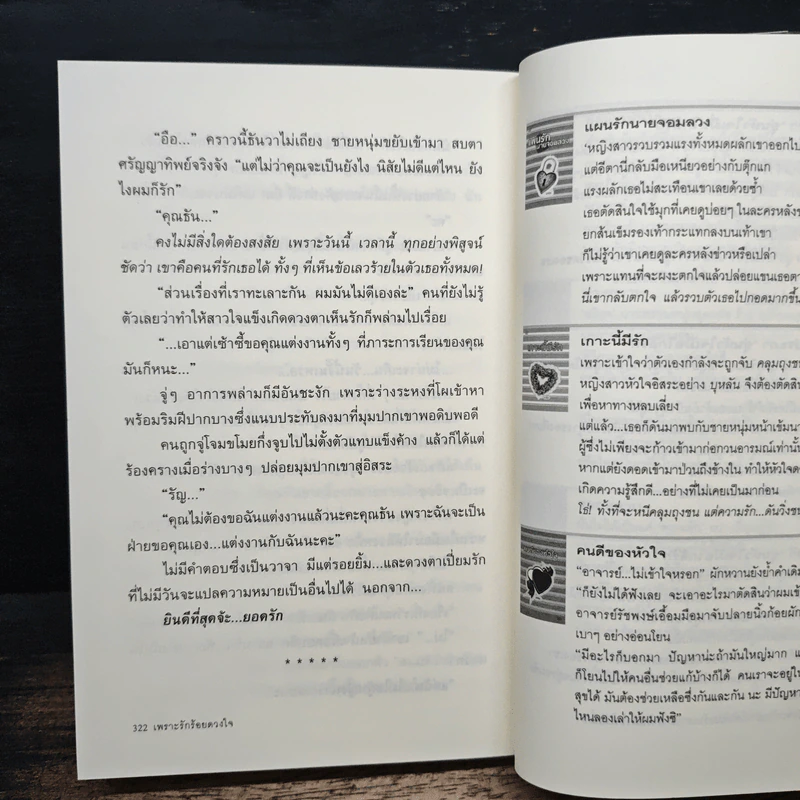 “อือ...” คราวนี้ธันวาไม่เถียง ชายหนุ่มขยับเข้ามา สบตา
ศรัญญาทิพย์จริงจัง “แต่ไม่ว่าคุณจะเป็นยังไง นิสัยไม่ดีแค่ไหน ยัง
ไงผมก็รัก”
“คุณธัน...”
คงไม่มีสิ่งใดต้องสงสัย เพราะวันนี้ เวลานี้ ทุกอย่างพิสูจน์
ชัดว่า เขาคือคนที่รักเธอได้ ทั้งๆ ที่เห็นข้อเลวร้ายในตัวเธอทั้งหมด!
“ส่วนเรื่องที่เราทะเลาะกัน ผมมันไม่ดีเองล่ะ” คนที่ยังไม่รู้
ตัวเลยว่าทำให้สาวใจแข็งเกิดดวงตาเห็นรักก็พล่ามไปเรื่อย
“...เอาแต่เซ้าซี้ขอคุณแต่งงานทั้งๆ ที่ภาระการเรียนของคุณ
มันก็หนะ...”
จู่ๆ อาการพล่ามก็มีอันชะงัก เพราะร่างระหงที่โผเข้าหา
พร้อมริมฝีปากบางซึ่งแนบประทับลงมาที่มุมปากเขาพอดิบพอดี
คนถูกจู่โจมขโมยกึ่งจูบไปไม่ตั้งตัวแทบแข็งค้าง แล้วก็ได้แต่
ร้องครางเมื่อร่างบางๆ ปล่อยมุมปากเขาสู่อิสระ
“รัญ...”
“คุณไม่ต้องขอฉันแต่งงานแล้วนะคะคุณธัน เพราะฉันจะเป็น
ฝ่ายขอคุณเอง...แต่งงานกับฉันนะคะ”
ไม่มีคำตอบซึ่งเป็นวาจา มีแต่รอยยิ้ม...และดวงตาเปี่ยมรัก
ที่ไม่มีวันจะแปลความหมายเป็นอื่นไปได้ นอกจาก...
ยินดีที่สุดจ้ะ...ยอดรัก
* * * * *
322 เพราะรักร้อยดวงใจ
แผนรักนายจอมลวง
‘หญิงสาวรวบรวมแรงทั้งหมดผลักเขาออกไป
แต่อีตานี่กลับมือเหนียวอย่างกับตุ๊กแก
แรงผลักเธอไม่สะเทือนเขาเลยด้วยซ้ำ
เธอตัดสินใจใช้มุกที่เคยดูบ่อยๆ ในละครหลังข่
ยกส้นเข็มรองเท้ากระแทกลงบนเท้าเขา
ก็ไม่รู้ว่าเขาเคยดูละครหลังข่าวหรือเปล่า
เพราะแทนที่จะผงะตกใจแล้วปล่อยแขนเธอตา
นี่เขากลับตกใจ แล้วรวบตัวเธอไปกอดมากขึ้น
เกาะนี้มีรัก
เพราะเข้าใจว่าตัวเองกำลังจะถูกจับ คลุมถุงชน
หญิงสาวหัวใจอิสระอย่าง บุหลัน จึงต้องตัดสิน
เพื่อหาทางหลบเลี่ยง
แต่แล้ว...เธอก็ดันมาพบกับชายหนุ่มหน้าเข้มนา
ผู้ซึ่งไม่เพียงจะก้าวเข้ามาก่อกวนอารมณ์เท่านั้น
หากแต่ยังตอดเข้ามาป่วนถึงข้างใน ทำให้หัวใจด
เกิดความรู้สึกดี...อย่างที่ไม่เคยเป็นมาก่อน
โธ่! ทั้งที่จะหนีคลุมถุงชน แต่ความรัก...ดันวิ่งชน
คนดีของหัวใจ
“อาจารย์...ไม่เข้าใจหรอก” ผักหวานยังย้ำคำเดิม
“ก็ยังไม่ได้ฟังเลย จะเอาอะไรมาตัดสินว่าผมเข้า
อาจารย์รัชพงษ์เอื้อมมือมาจับปลายนิ้วก้อยผัก
เบาๆ อย่างอ่อนโยน
“มีอะไรก็บอกมา ปัญหาน่ะถ้ามันใหญ่มาก แ
ก็โยนไปให้คนอื่นช่วยแก้บ้างก็ได้ คนเราจะอยู่ให้
สุขได้ มันต้องช่วยเหลือซึ่งกันและกัน นะ มีปัญหา
ไหนลองเล่าให้ผมฟังซิ”